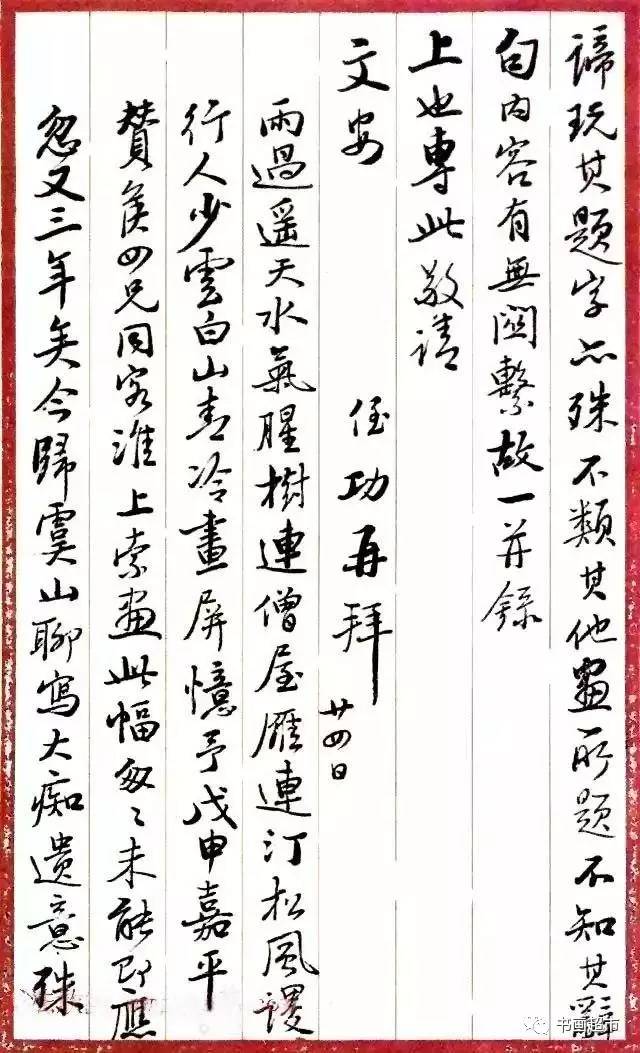 諦玩其題字亦殊不類其他畫所題不知其辭
句内容有無關繫故一并錄
上也專此敬請
文安
侄功再拜
廿四日
雨過遥天水氣腥樹連僧屋雁連汀松風謖
行人少雲白山青冷畫屏憶予戊申嘉平
贊侯四兄同客淮上索畫此幅匆〻未能即應
忽又三年矣今歸虞山聊寫大痴遺意殊
书画超市